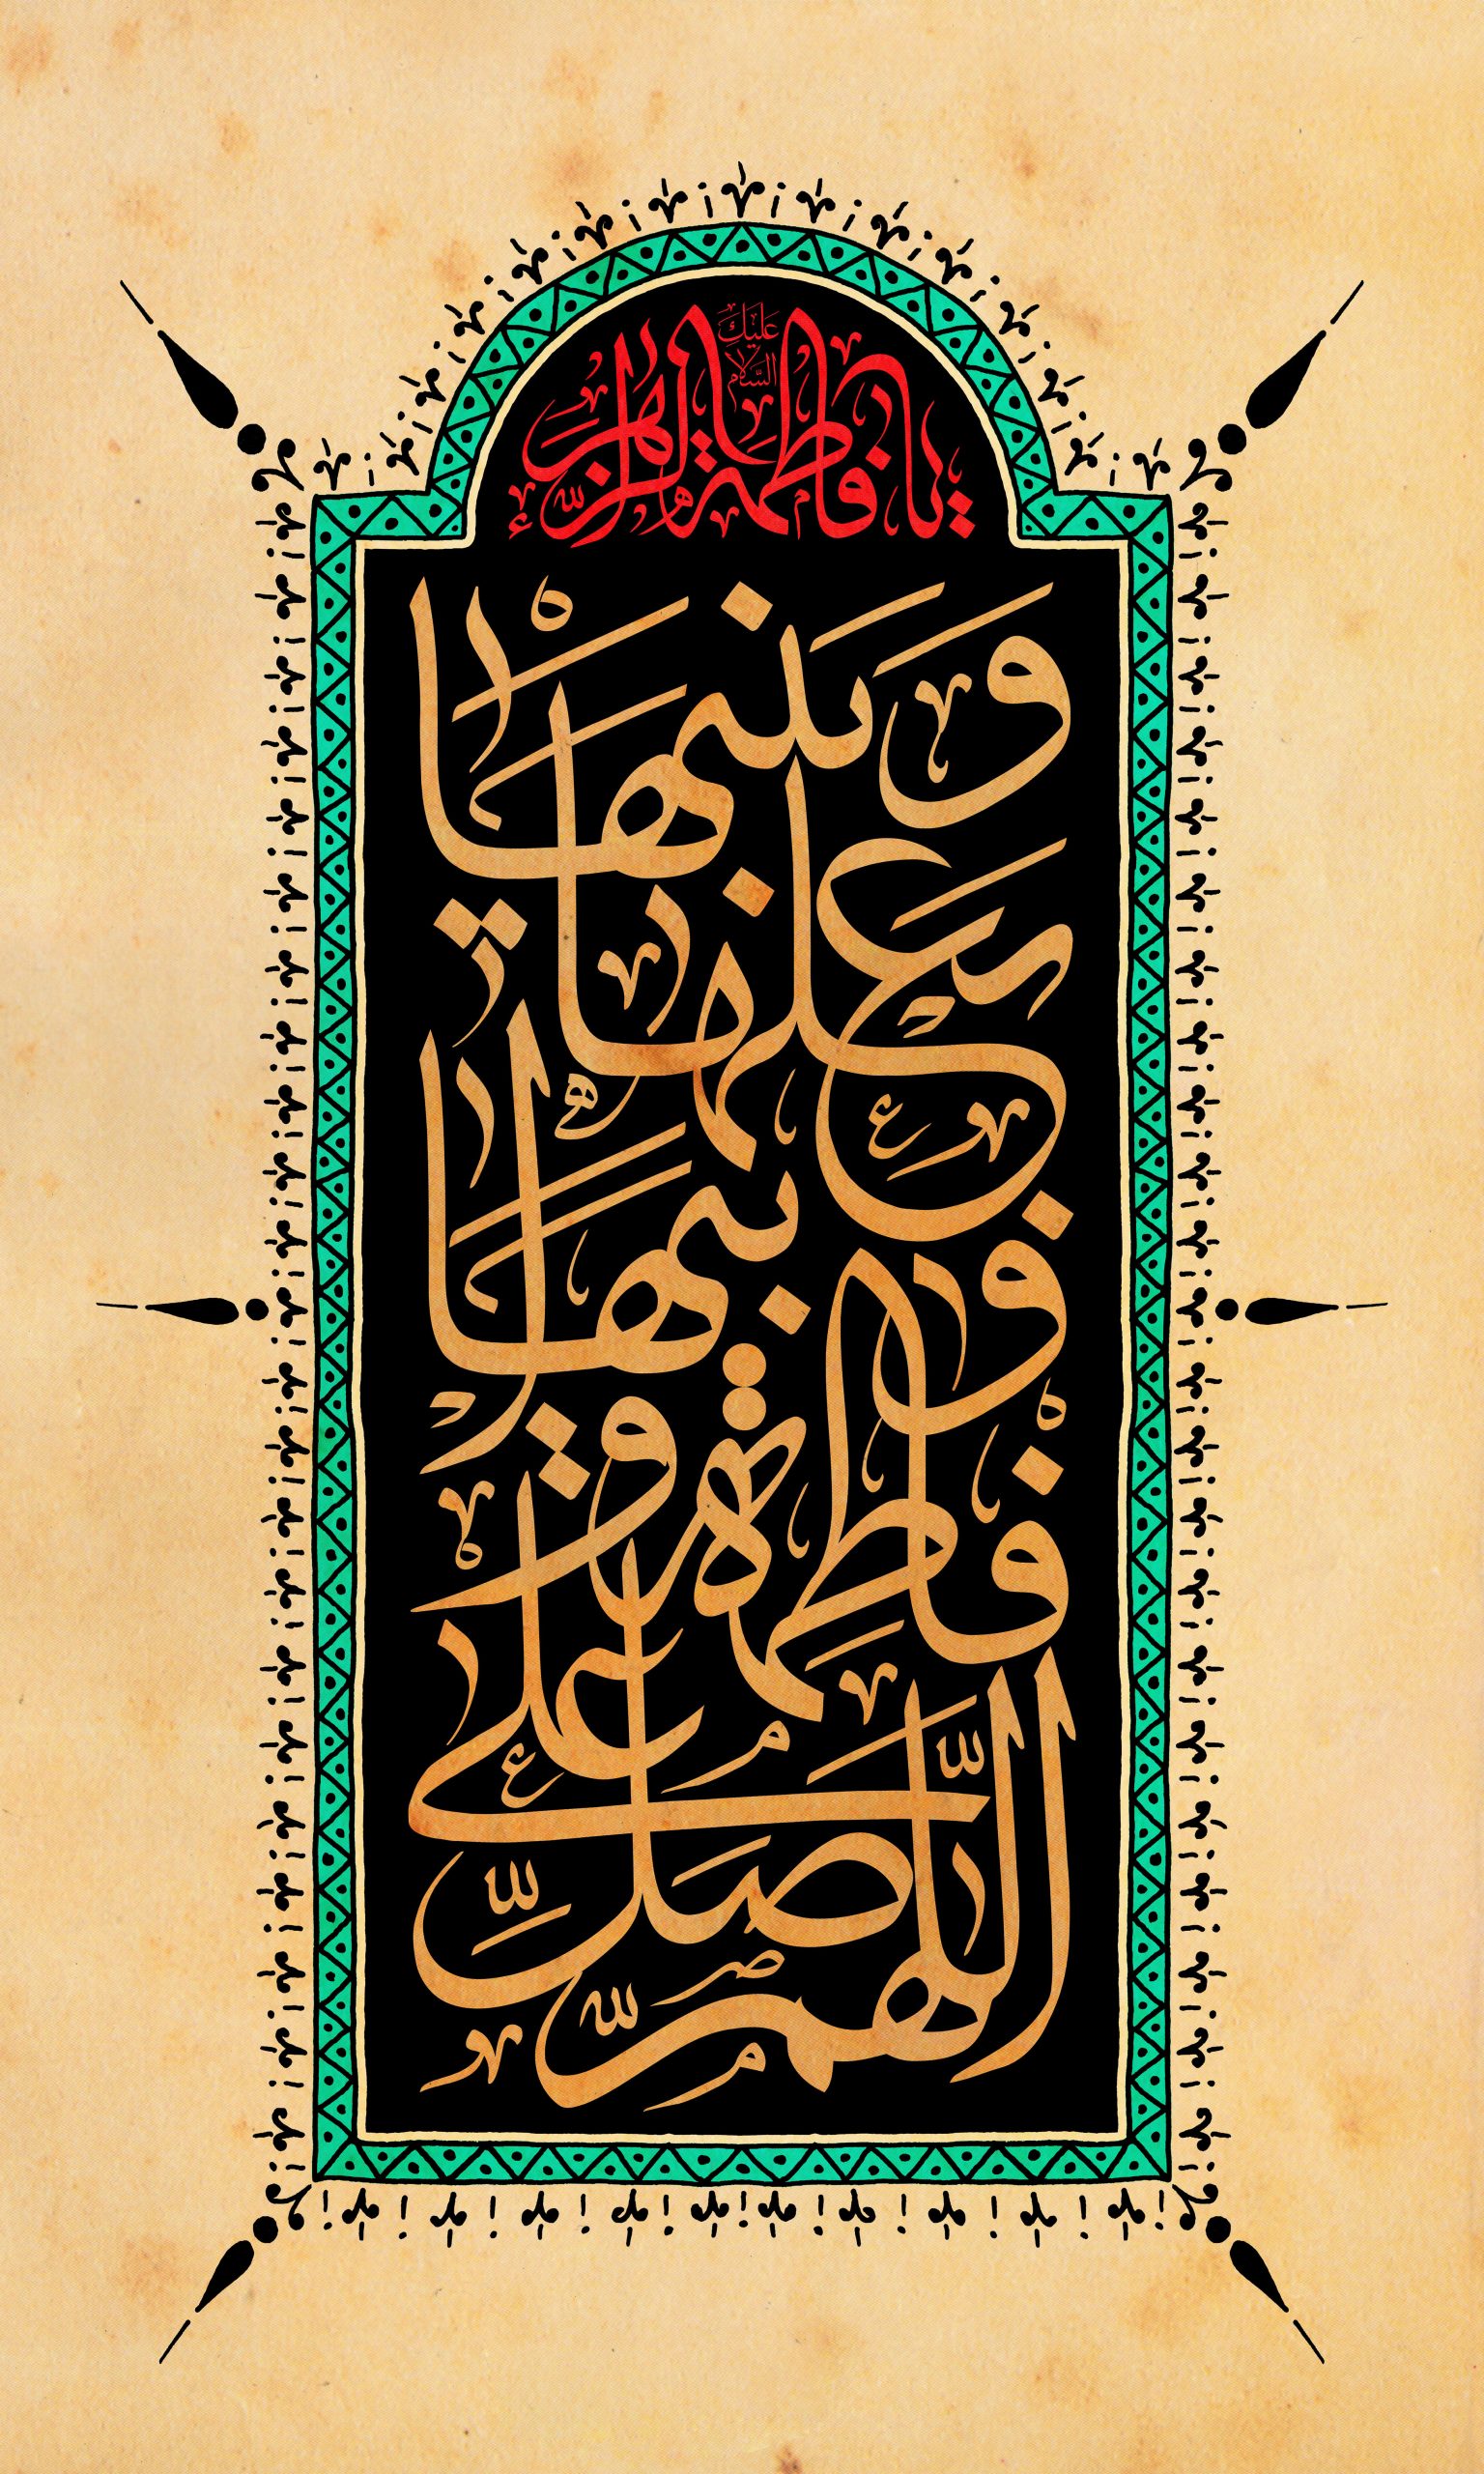 يا فاطمة الزهراء
السَّلام عَلَيكِ
اللهم
صل على
فاطمة و
ابيها و
بعلها
وبنيها